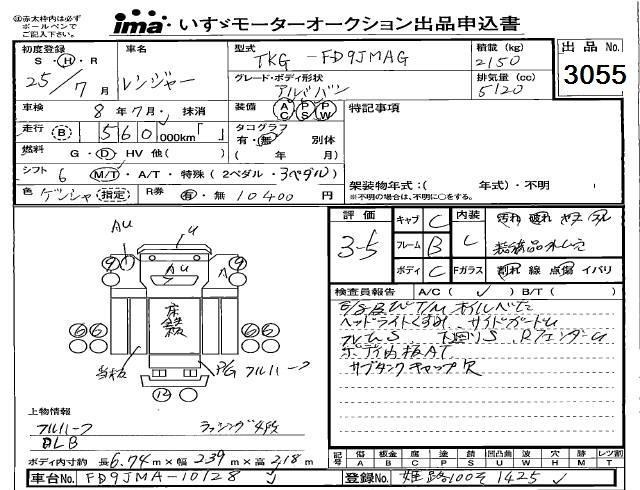 ㊟赤太枠内は必ず
ボールペンで
ご記入下さい。
ima・いすゞモーターオークション出品申込書
初度登録
S・H・R
25/7月
車名
レンジャー
型式
TKG-FD9JMAG
積載(kg)
2150
出品No.
3055
グレード・ボディ形状
アルミバン
排気量(cc)
5120
車検
8年7月・抹消
装備
AC PS PW
特記事項
走行
B
560,000km「 」
タコグラフ
有・無 別体
( 年 月)
燃料
G・D・HV 他( )
シフト
6 M/T・A/T・特殊(2ペダル・3ペダル)
色
ゲンシャ 指定
R券
有・無 10400円
架装物年式:( 年式)・不明
※不明の場合は、不明に○をする。
評価
3-5
キャブ C
フレーム B
ボディ C
内装
Fガラス
割れ 線 点傷 イバリ
検査員報告
A/C( ✓ ) B/T( )
AU
U
AU
A
9
9
6 6
6 6
12
P/G フルハーフ
ヘッドライトくすみ、サイドガードU
下回りS、RフェンダーU
ボデー内板AT
サブタンクキャップ欠
上物情報
フルハーフ
ラッシング4段
ボディ内寸約 長6.74m×幅2.39m×高2.18m
記号
傷 A
板金 B
腐 C
塗 P
錆 S
凹凸曲 U
波 W
穴 H
跡 M
レツ割 T
車台No. FD9JMA-10128
登録No. 姫路100そ1425